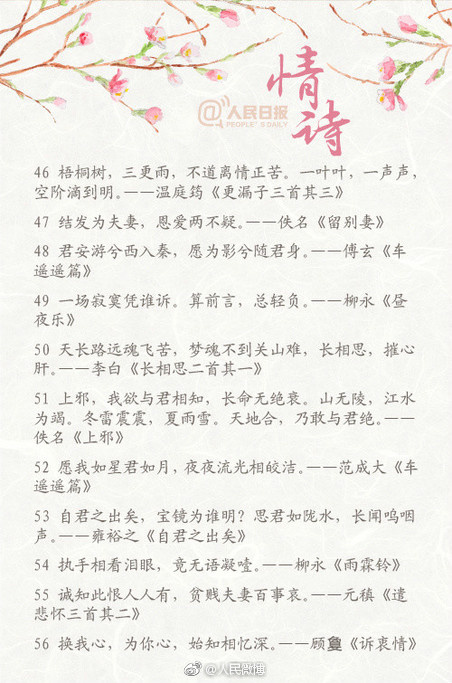 情诗
@人民日报
PEOPLE'S DAILY
46 梧桐树，三更雨，不道离情正苦。一叶叶，一声声，
空阶滴到明。——温庭筠《更漏子三首其三》
47 结发为夫妻，恩爱两不疑。——佚名《留别妻》
48 君安游兮西入秦，愿为影兮随君身。——傅玄《车
遥遥篇》
49 一场寂寞凭谁诉。算前言，总轻负。——柳永《昼
夜乐》
50 天长路远魂飞苦，梦魂不到关山难，长相思，摧心
肝。——李白《长相思二首其一》
51 上邪，我欲与君相知，长命无绝衰。山无陵，江水
为竭。冬雷震震，夏雨雪。天地合，乃敢与君绝。——
佚名《上邪》
52 愿我如星君如月，夜夜流光相皎洁。——范成大《车
遥遥篇》
53 自君之出矣，宝镜为谁明？思君如陇水，长闻呜咽
声。——雍裕之《自君之出矣》
54 执手相看泪眼，竟无语凝噎。——柳永《雨霖铃》
55 诚知此恨人人有，贫贱夫妻百事哀。——元稹《遣
悲怀三首其二》
56 换我心，为你心，始知相忆深。——顾敻《诉衷情》
@人民微博